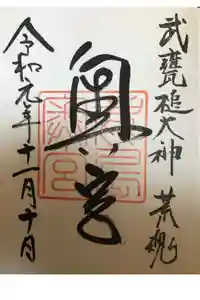 武甕槌大神 荒魂
奥ノ宮
令和元年十一月十日